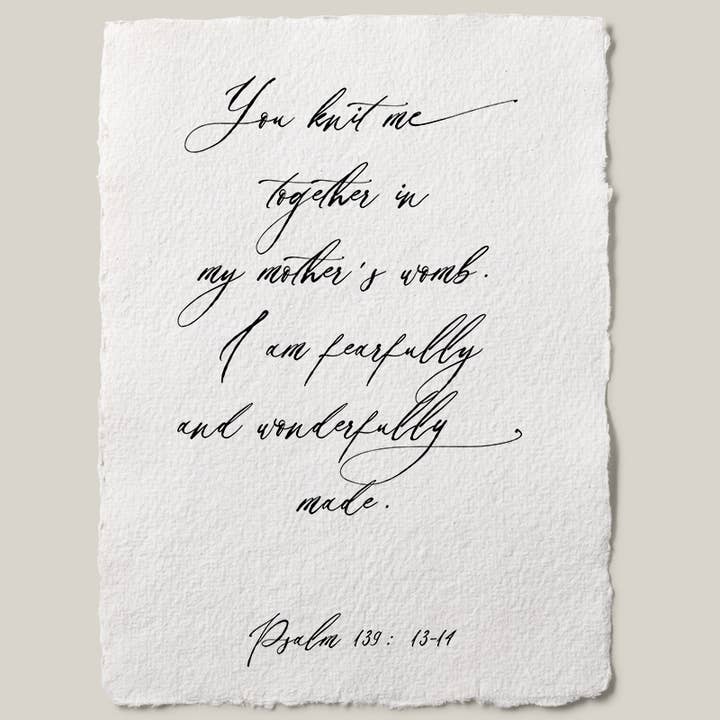 You knit me
together in
my mother's womb.
I am fearfully
and wonderfully
made.
Psalm 139: 13-14